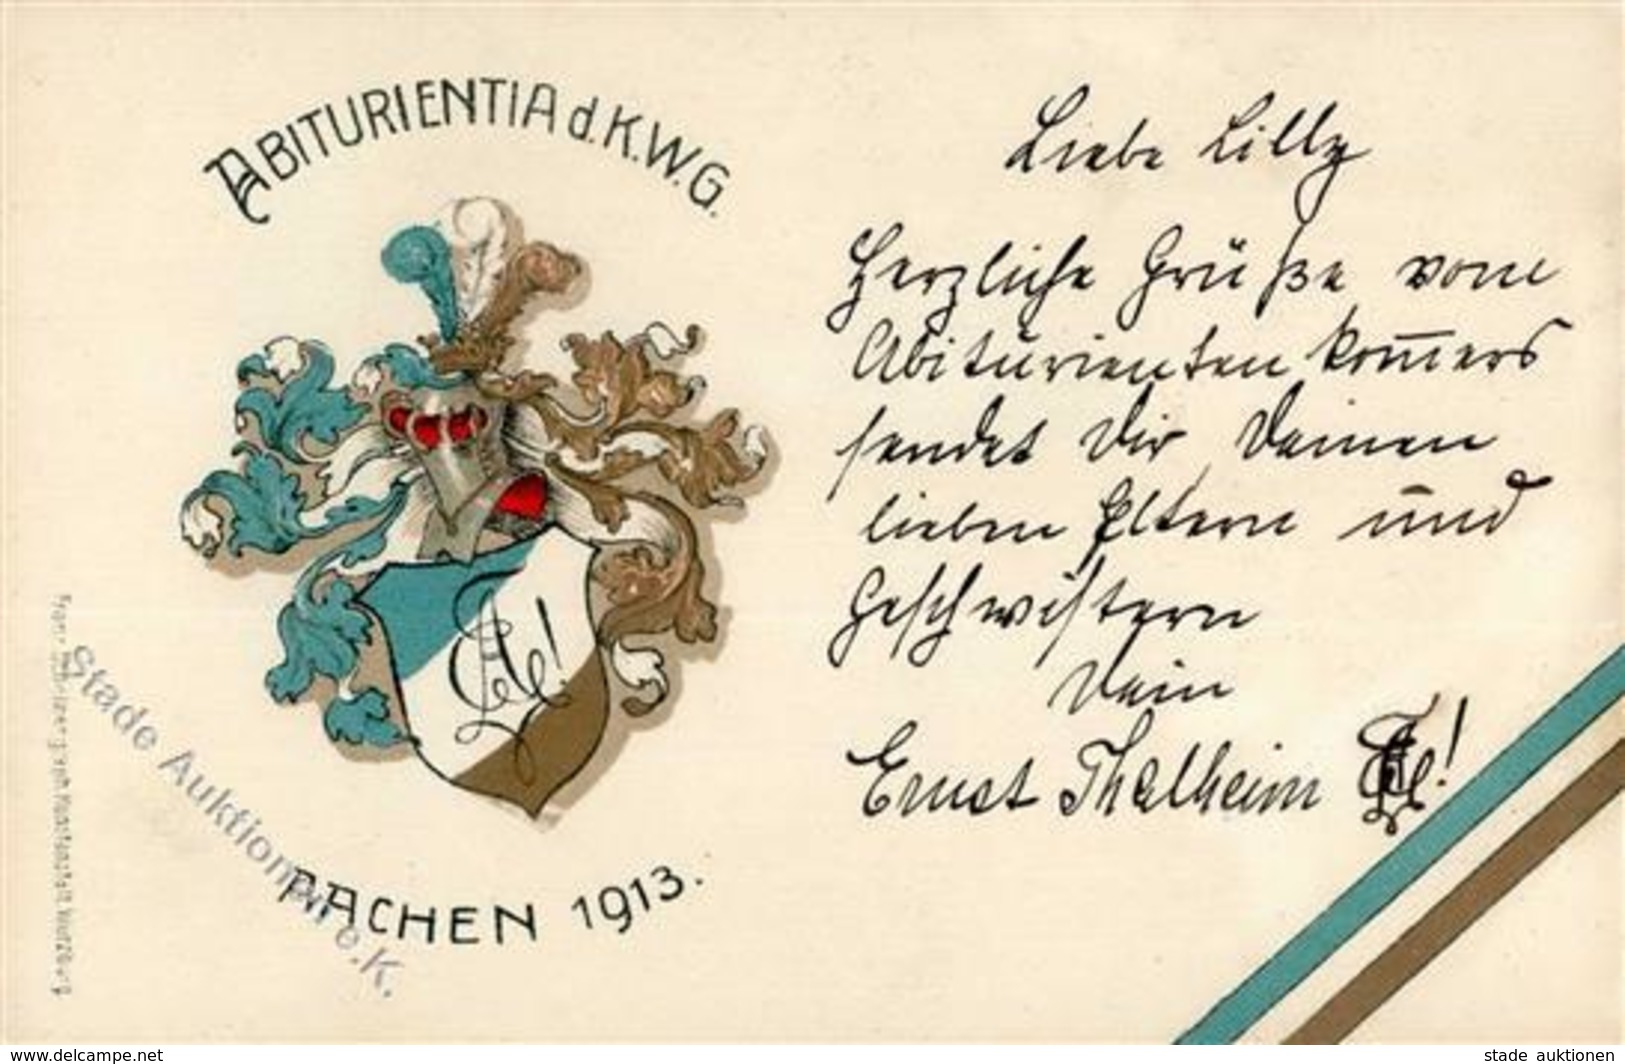 ABITURIENTIA d. K.W.G.
AACHEN 1913.
Liebe Lilly
Herzliche Grüße vom
Abiturienten kom̅ers
sendet Dir Deinen
lieben Eltern und
Geschwistern
Dein
Ernst Thalheim
Stade Auktionen e.K.
www.delcampe.net
stade auktionen